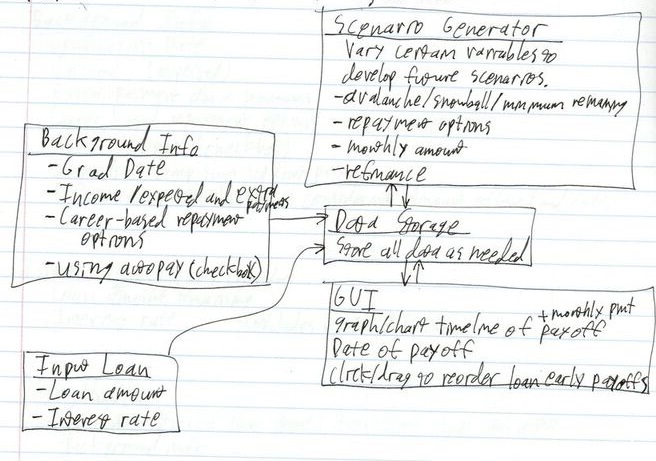 Scenario Generator
Vary certain variables to
develop future scenarios.
-avalanche/snowball/minimum remaining
-repayment options
-monthly amount
-refinance
Background Info
-Grad Date
-Income/expected and extra payments
-Career-based repayment
options
-using autopay (checkbox)
Data Storage
Store all data as needed
GUI
graph/chart timeline of payoff + monthly pmt
Date of payoff
Click/drag to reorder loan early payoffs
Input Loan
-Loan amount
-Interest rate